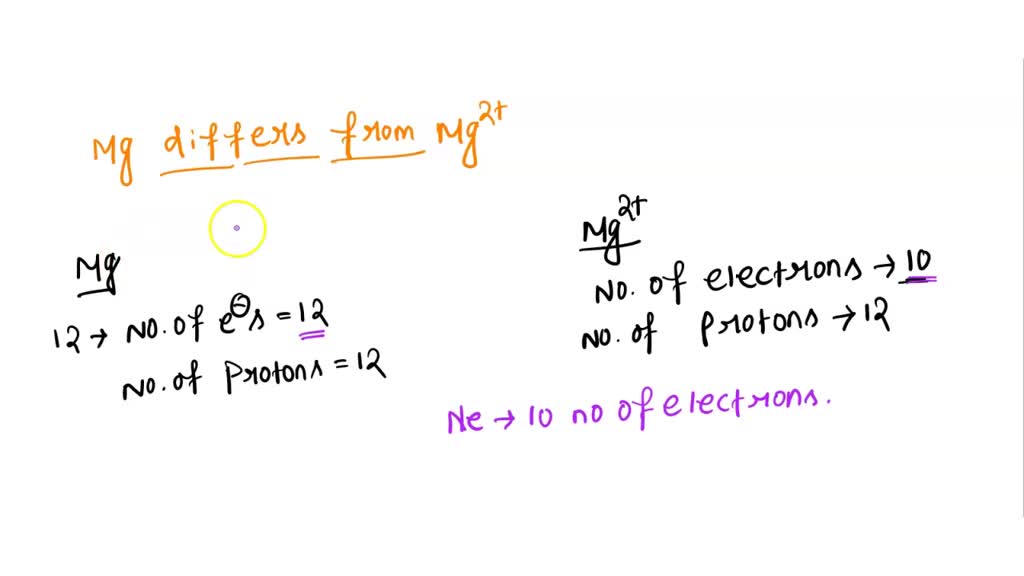 Mg differs from Mg²⁺
Mg
12 → No. of e⊖s = 12
No. of Protons = 12
Mg²⁺
No. of electrons → 10
No. of protons → 12
Ne → 10 no of electrons.